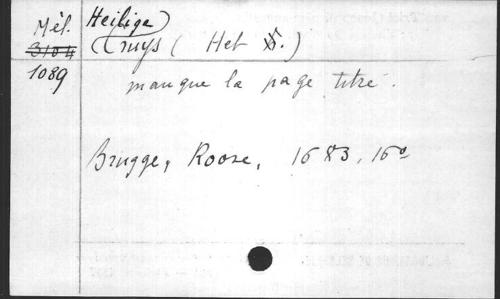 Mél.
3104
1089
Heilige
Cruys ( Het .)
manque la page titre.
Brugge, Roose, 1683, 16°